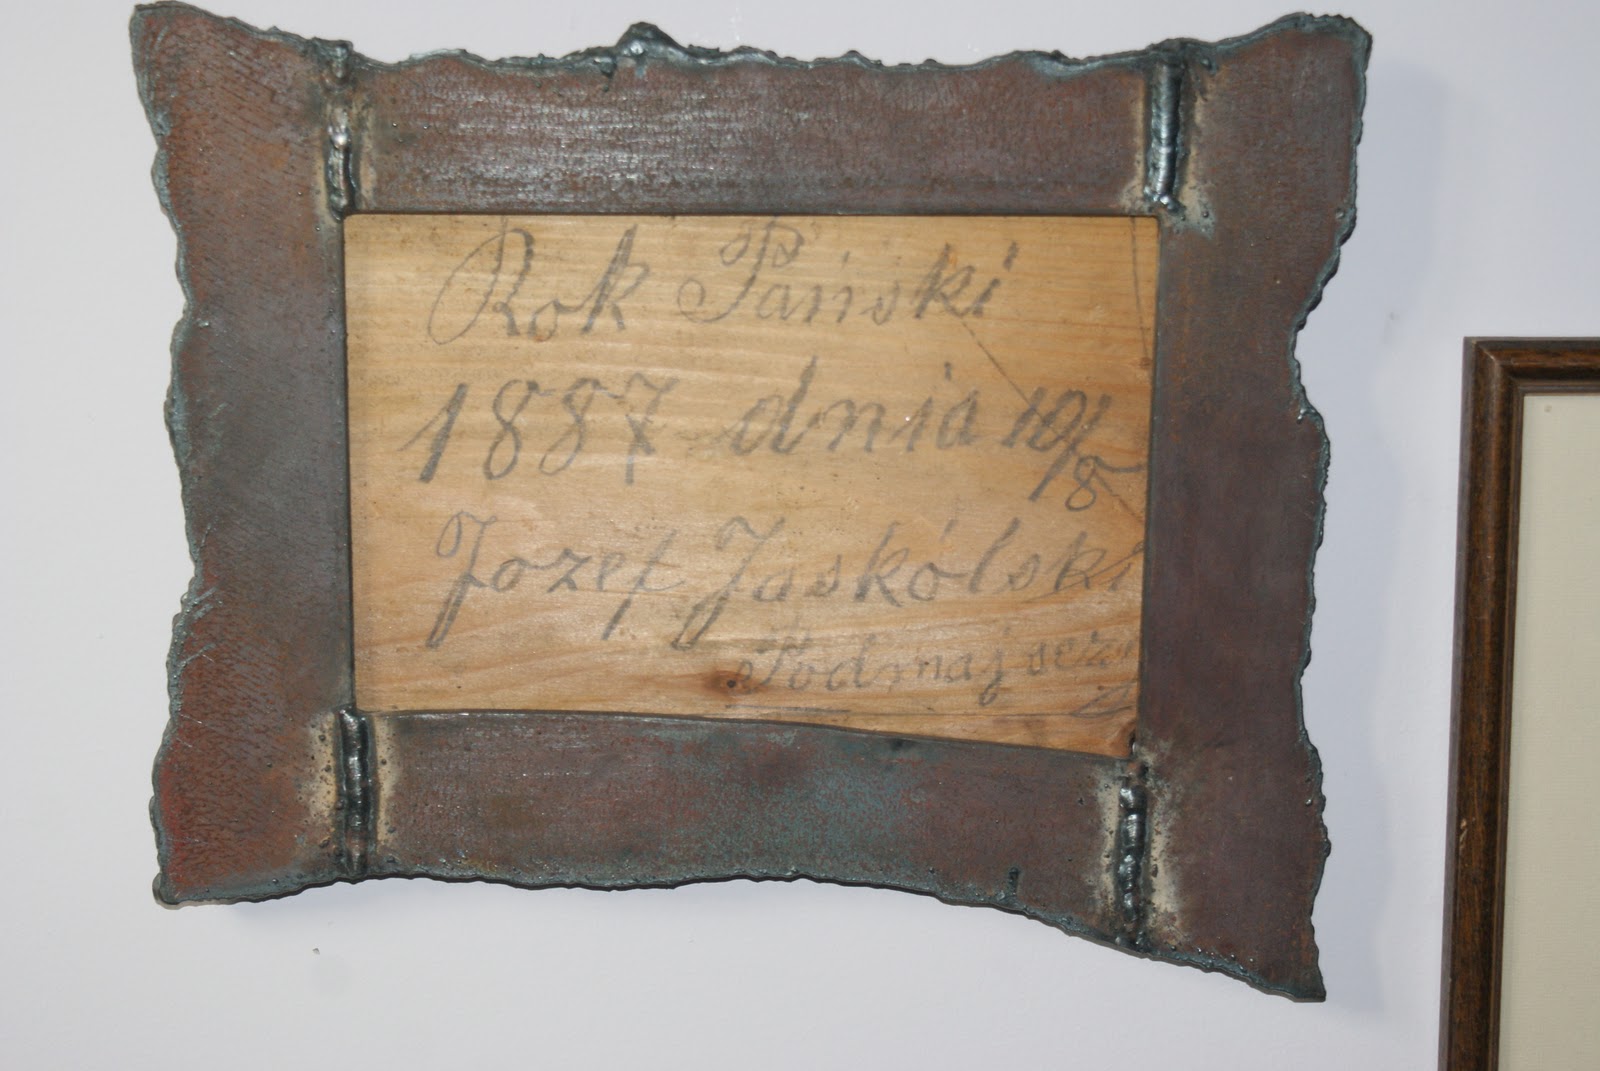 Rok Pański
1887 dnia 19/8
Jozef Jaskólski
Podmajserz